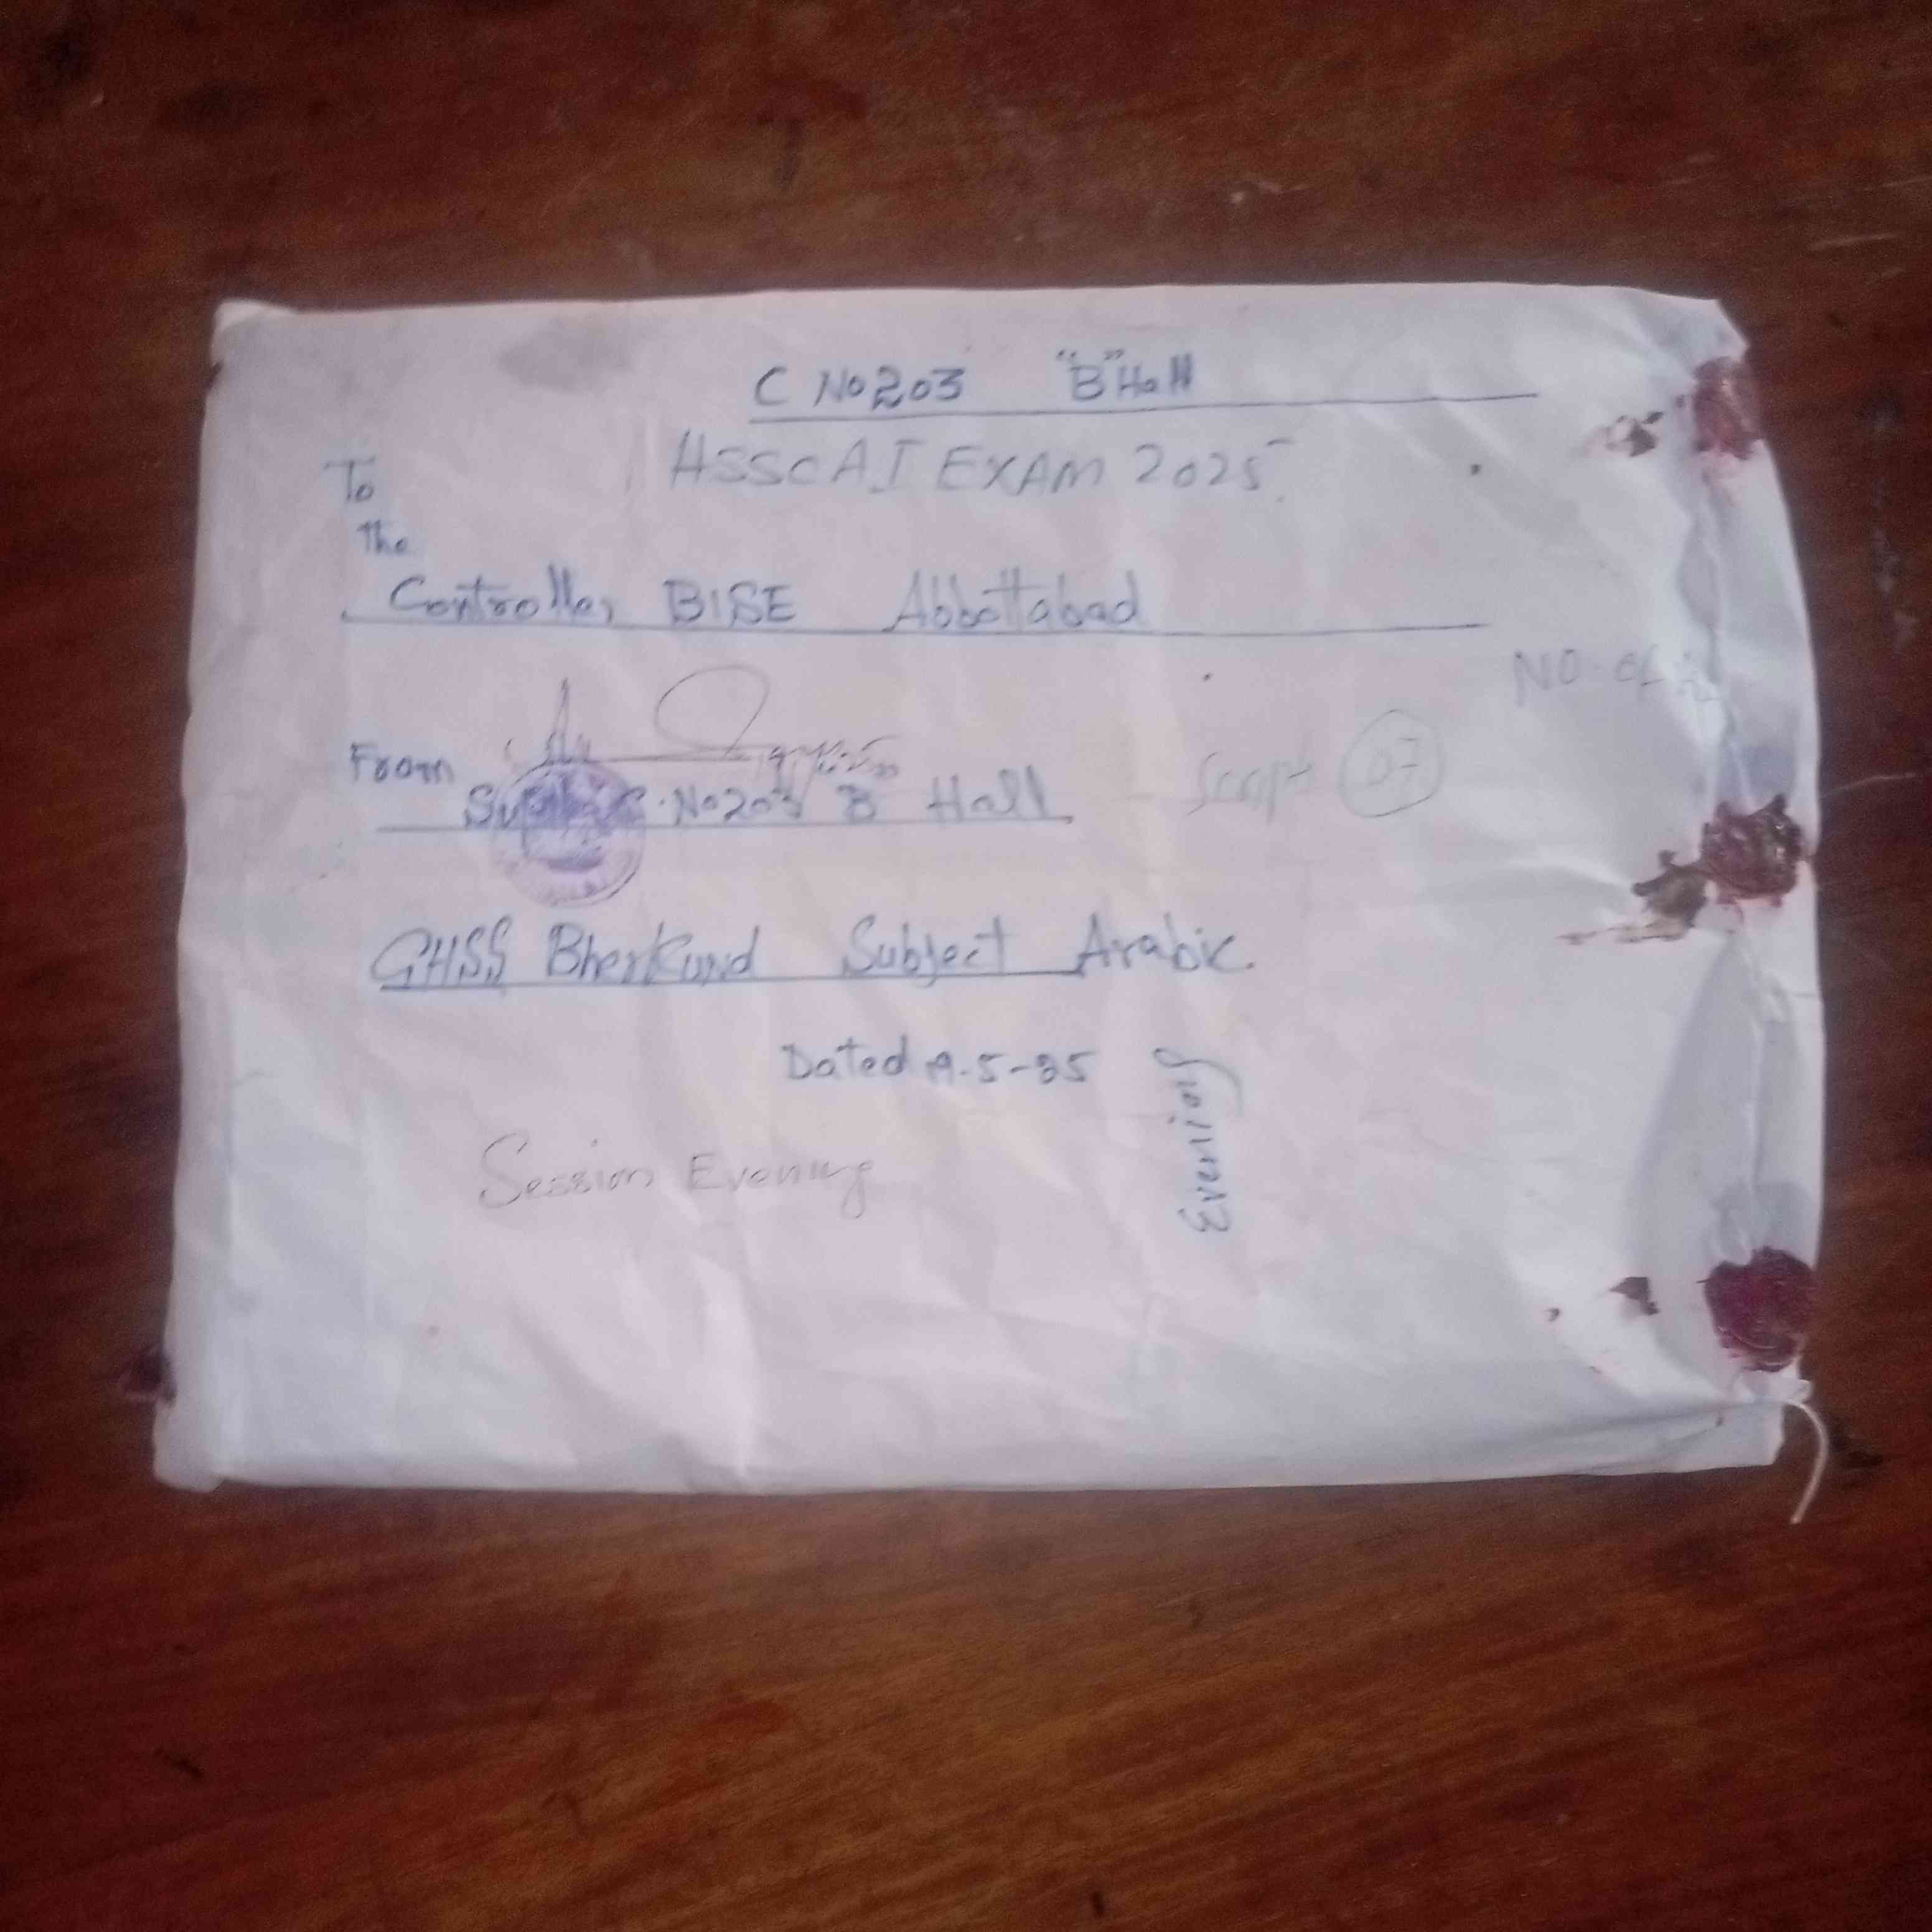 C No 203 "B" Hall
HSSC A I EXAM 2025.
To
The
Controller BISE Abbottabad
NO of
From
Supdt C. No 203 B Hall
Script 07
GHSS Bherkund Subject Arabic.
Dated 19-5-25
Evening
Session Evening